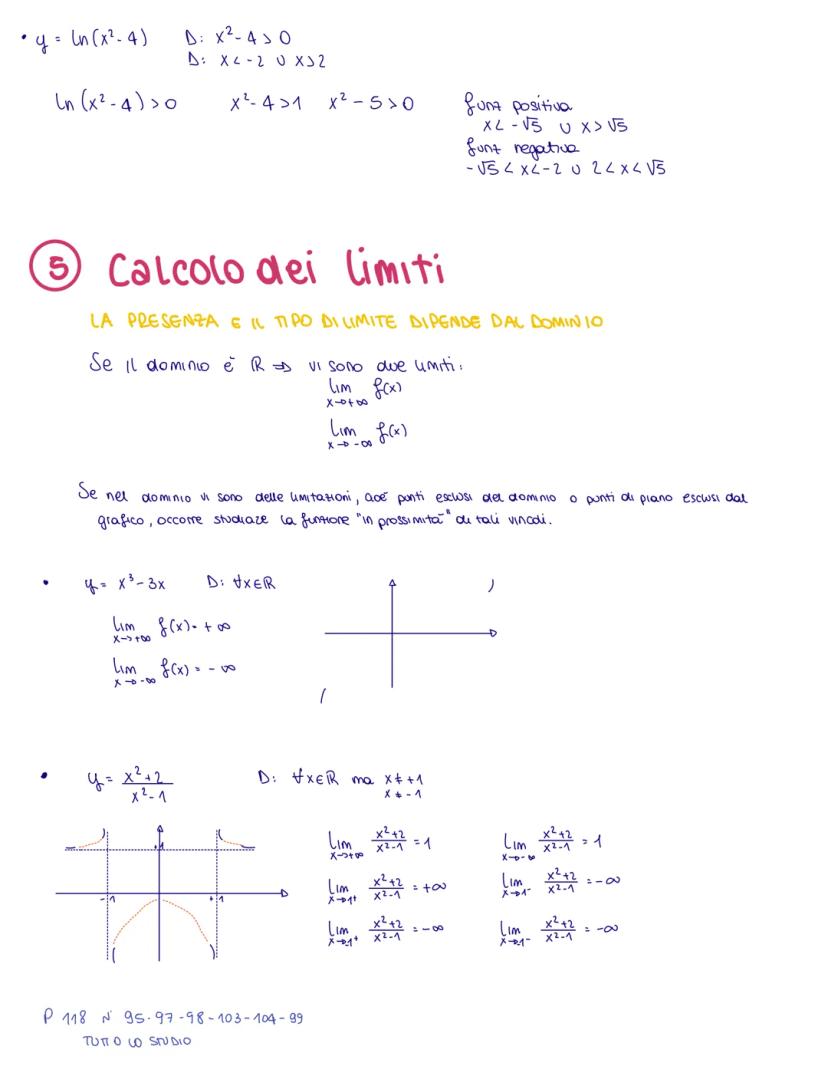 • y = ln(x²-4) D: x²-4>0
D: x<-2 ∪ x>2
ln(x²-4)>0 x²-4>1 x²-5>0 funz positiva
x<-√5 ∪ x>√5
funz negativa
-√5<x<-2 ∪ 2<x<√5
5 Calcolo dei limiti
LA PRESENZA E IL TIPO DI LIMITE DIPENDE DAL DOMINIO
Se il dominio è ℝ ⇒ vi sono due limiti:
lim f(x)
x→+∞
lim f(x)
x→-∞
Se nel dominio vi sono delle limitazioni, cioè punti esclusi del dominio o punti di piano esclusi dal
grafico, occorre studiare la funzione "in prossimità" di tali vincoli.
• y = x³-3x D: ∀x∈ℝ
lim f(x) = +∞
x→+∞
lim f(x) = -∞
x→-∞
• y = x²+2 / x²-1 D: ∀x∈ℝ ma x≠+1
x≠-1
+1
-1 +1
lim x→+∞ x²+2 / x²-1 = 1 lim x→-∞ x²+2 / x²-1 = 1
lim x→1⁺ x²+2 / x²-1 = +∞ lim x→1⁻ x²+2 / x²-1 = -∞
lim x→-1⁺ x²+2 / x²-1 = -∞ lim x→1⁻ x²+2 / x²-1 = -∞
P 118 N° 95-97-98-103-104-99
TUTTO LO STUDIO